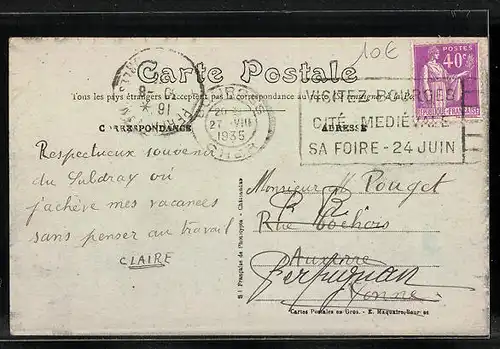 10€
Carte Postale
POSTES
40c
Tous les pays étrangers n'acceptent pas la correspondance au recto
CORRESPONDANCE
ADRESSE
BOURGES
27 VIII
1935
CHER
VISITEZ BOURGES
CITÉ MEDIÉVALE
SA FOIRE - 24 JUIN
Respectueux souvenir
du Subdray où
j'achève mes vacances
sans penser au travail
CLAIRE
Monsieur Pouget
P. R.
Rue Cochois
Auxerre
Perpignan
Yonne
Sté Française de Phototypie - Châteauroux
Cartes Postales en Gros. - E. Maquaire, Bourges